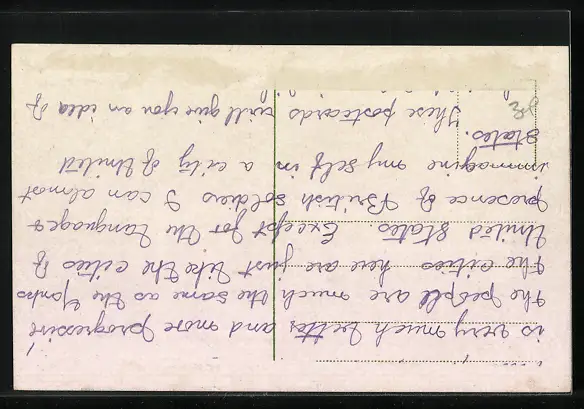 is very much better and more progressive
the people are much the same as the Yanks
The cities here are just like the cities of
United States. Except for the Languages
presence of British soldiers I can almost
immagine my self in a city of United
States.
These postcards will give you an idea of